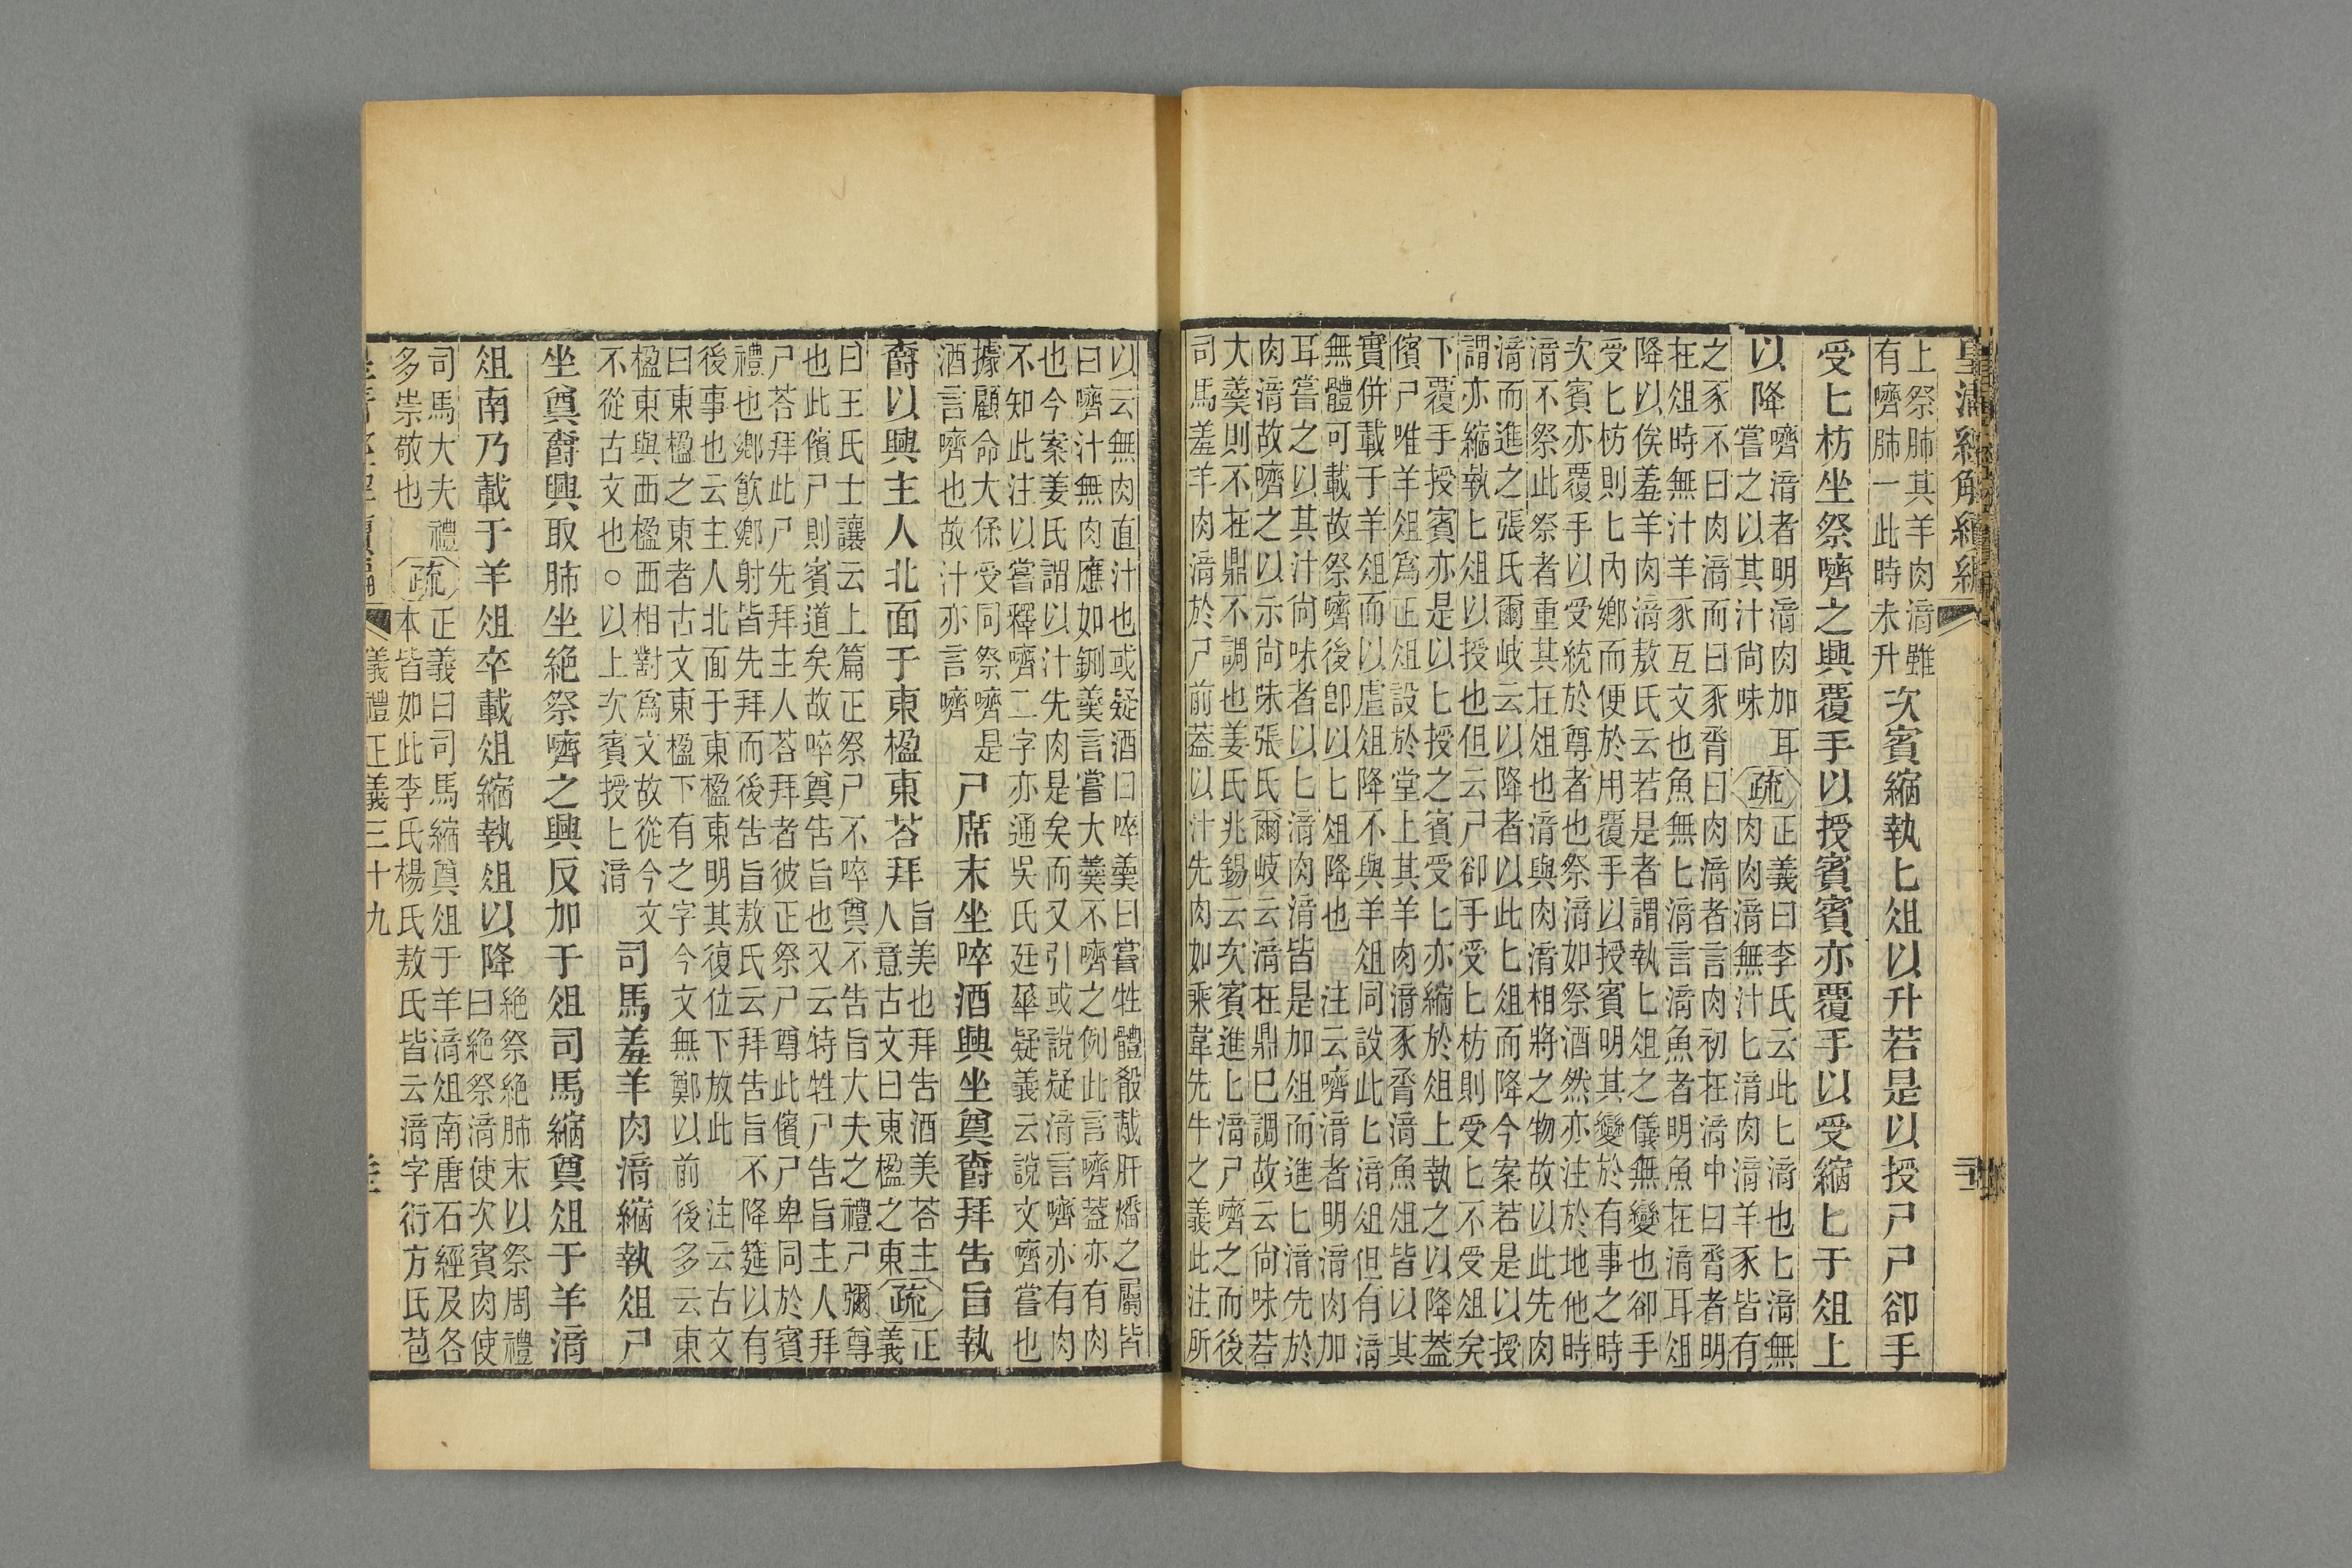 皇清經解續編
上祭肺其羊肉湆雖
有嚌肺一此時未升
次賓縮執匕俎以升若是以授尸尸卻手
受匕枋坐祭嚌之興覆手以授賓賓亦覆手以受縮匕于俎上
以降
嚌湆者明湆肉加耳
嘗之以其汁尚味
疏
正義曰李氏云此匕湆也匕湆無
肉肉湆無汁匕湆肉湆羊豕皆有
之豕不曰肉湆而曰豕脀曰肉湆者言肉初在湆中曰脀者明
在俎時無汁羊豕互文也魚無匕湆言湆魚者明魚在湆耳俎
降以俟羞羊肉湆敖氏云若是者謂執匕俎之儀無變也卻手
受匕枋則匕內鄉而便於用覆手以授賓明其變於有事之時
次賓亦覆手以受統於尊者也祭湆如祭酒然亦注於地他時
湆不祭此祭者重其在俎也湆與肉湆相將之物故以此先肉
湆而進之張氏爾岐云以降者以此匕俎而降今案若是以授
謂亦縮執匕俎以授也但云尸卻手受匕枋則受匕不受俎矣
下覆手授賓亦是以匕授之賓受匕亦縮於俎上執之以降葢
儐尸唯羊俎爲正俎設於堂上其羊肉湆豕脀湆魚俎皆以其
實併載于羊俎而以虛俎降不與羊俎同設此匕湆俎但有湆
無體可載故祭嚌後卽以匕俎降也　注云嚌湆者明湆肉加
耳嘗之以其汁尚味者以匕湆肉湆皆是加俎而進匕湆先於
肉湆故嚌之以示尚味張氏爾岐云湆在鼎巳調故云尚味若
大羹則不在鼎不調也姜氏兆錫云次賓進匕湆尸嚌之而後
司馬羞羊肉湆於尸前葢以汁先肉如乘韋先牛之義此注所
以云無肉直汁也或疑酒曰啐羹曰嘗牲體殽胾肝燔之屬皆
曰嚌汁無肉應如鉶羹言嘗大羹不嚌之例此言嚌葢亦有肉
也今案姜氏謂以汁先肉是矣而又引或說疑湆言嚌亦有肉
不知此注以嘗釋嚌二字亦通吳氏廷華疑義云說文嚌嘗也
據顧命大保受同祭嚌是
酒言嚌也故汁亦言嚌
尸席末坐啐酒興坐奠爵拜告旨執
爵以興主人北面于東楹東荅拜
旨美也拜告酒美荅主
人意古文曰東楹之東
疏
正
義
曰王氏士讓云上篇正祭尸不啐奠不告旨大夫之禮尸彌尊
也此儐尸則賓道矣故啐奠告旨也又云特牲尸告旨主人拜
尸荅拜此尸先拜主人荅拜者彼正祭尸尊此儐尸卑同於賓
禮也鄉飮鄉射皆先拜而後告旨敖氏云拜告旨不降筵以有
後事也云主人北面于東楹東明其復位下放此　注云古文
曰東楹之東者古文東楹下有之字今文無鄭以前後多云東
楹東與西楹西相對爲文故從今文
不從古文也○以上次賓授匕湆
司馬羞羊肉湆縮執俎尸
坐奠爵興取肺坐絕祭嚌之興反加于俎司馬縮奠俎于羊湆
俎南乃載于羊俎卒載俎縮執俎以降
絕祭絕肺末以祭周禮
曰絕祭湆使次賓肉使
司馬大夫禮
多崇敬也
疏
正義曰司馬縮奠俎于羊湆俎南唐石經及各
本皆如此李氏楊氏敖氏皆云湆字衍方氏苞
儀禮正義三十九